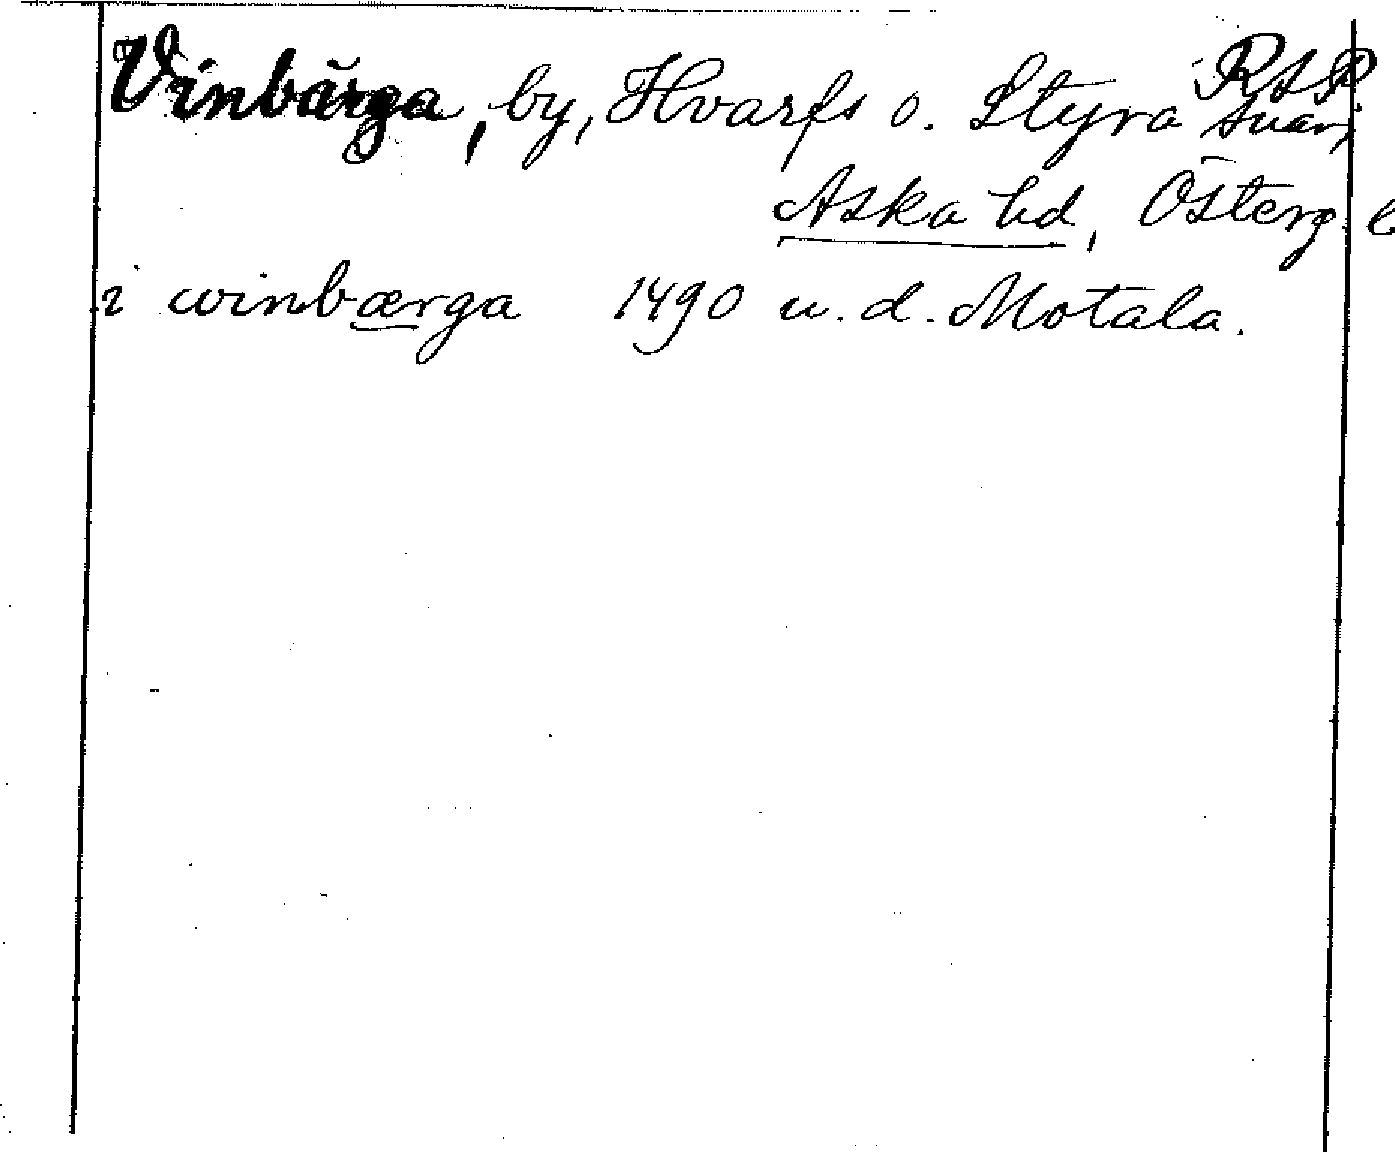 RAP.
Vinbärga, by, Hvarfs o. Styra snar,
Aska hd, Österg. l
i winbærga 1490 u. d. Motala.